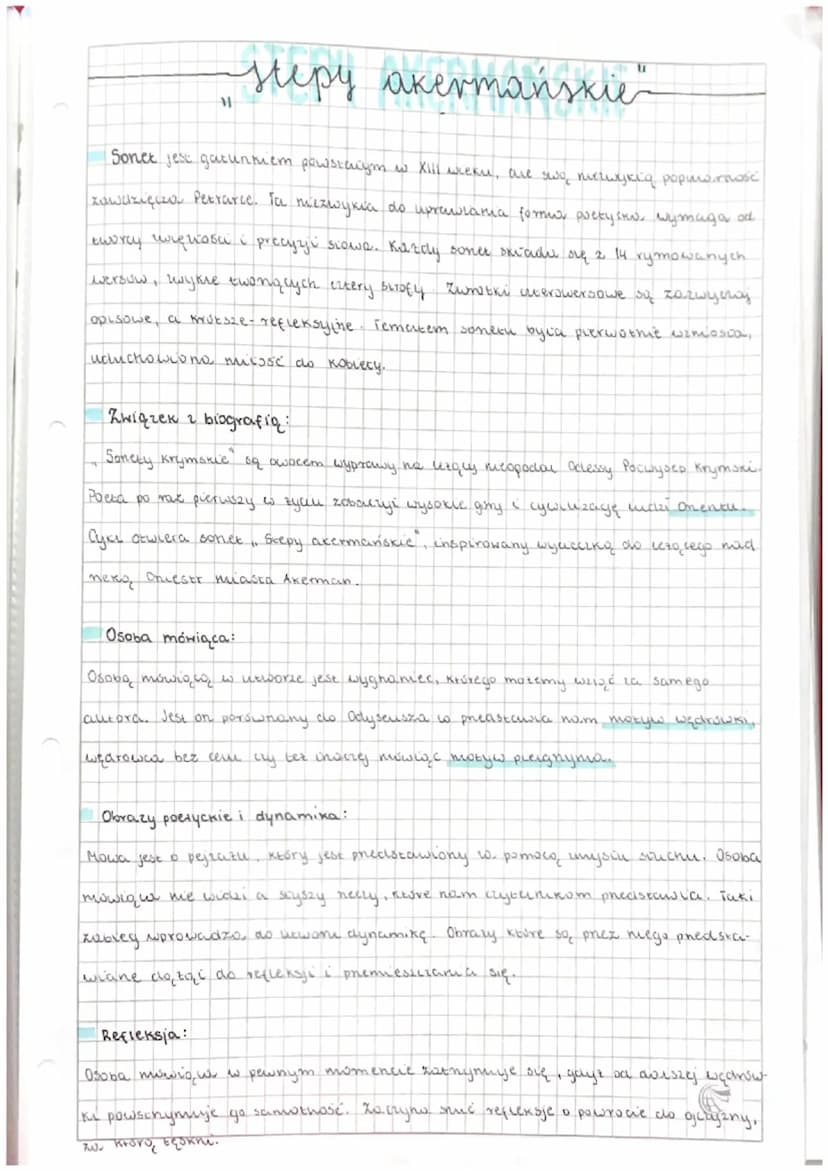 STEPY AKERMAŃSKIE
„Stepy akermańskie"
Sonet jest gatunkiem powstałym w XIII wieku, ale swą niezwykłą popularność
zawdzięcza Petrarce. Ta niezwykła do uprawiania forma poetycka wymaga od
twórcy zwięzłości i precyzji słowa. Każdy sonet składa się z 14 rymowanych
wersów, zwykle tworzących cztery strofy. Zwrotki czterowersowe są zazwyczaj
opisowe, a krótsze - refleksyjne. Tematem sonetu była pierwotnie wzniosła,
uduchowiona miłość do kobiety.
Związek z biografią:
„Sonety krymskie" są owocem wyprawy na leżący nieopodal Odessy Półwysep Krymski.
Poeta po raz pierwszy w życiu zobaczył wysokie góry i cywilizację ludzi Orientu.
Cykl otwiera sonet „Stepy akermańskie", inspirowany wycieczką do leżącego nad
rzeką Dniestr miasta Akerman.
Osoba mówiąca:
Osobą mówiącą w utworze jest wygnaniec, którego możemy wziąć za samego
autora. Jest on porównany do Odyseusza co przedstawia nam motyw wędrówki,
wędrowca bez celu czy też inaczej mówiąc motyw pielgrzyma.
Obrazy poetyckie i dynamika:
Mowa jest o pejzażu, który jest przedstawiony za pomocą zmysłu słuchu. Osoba
mówiąca nie widzi a słyszy rzeczy, które nam czytelnikom przedstawia. Taki
zabieg wprowadza do utworu dynamikę. Obrazy które są przez niego przedsta-
wiane dążąći do refleksji i przemieszczania się.
Refleksja:
Osoba mówiąca w pewnym momencie zatrzymuje się, gdyż od dalszej wędrów-
ki powstrzymuje go samotność. Zaczyna snuć refleksje o powrocie do ojczyzny,
za którą tęskni.